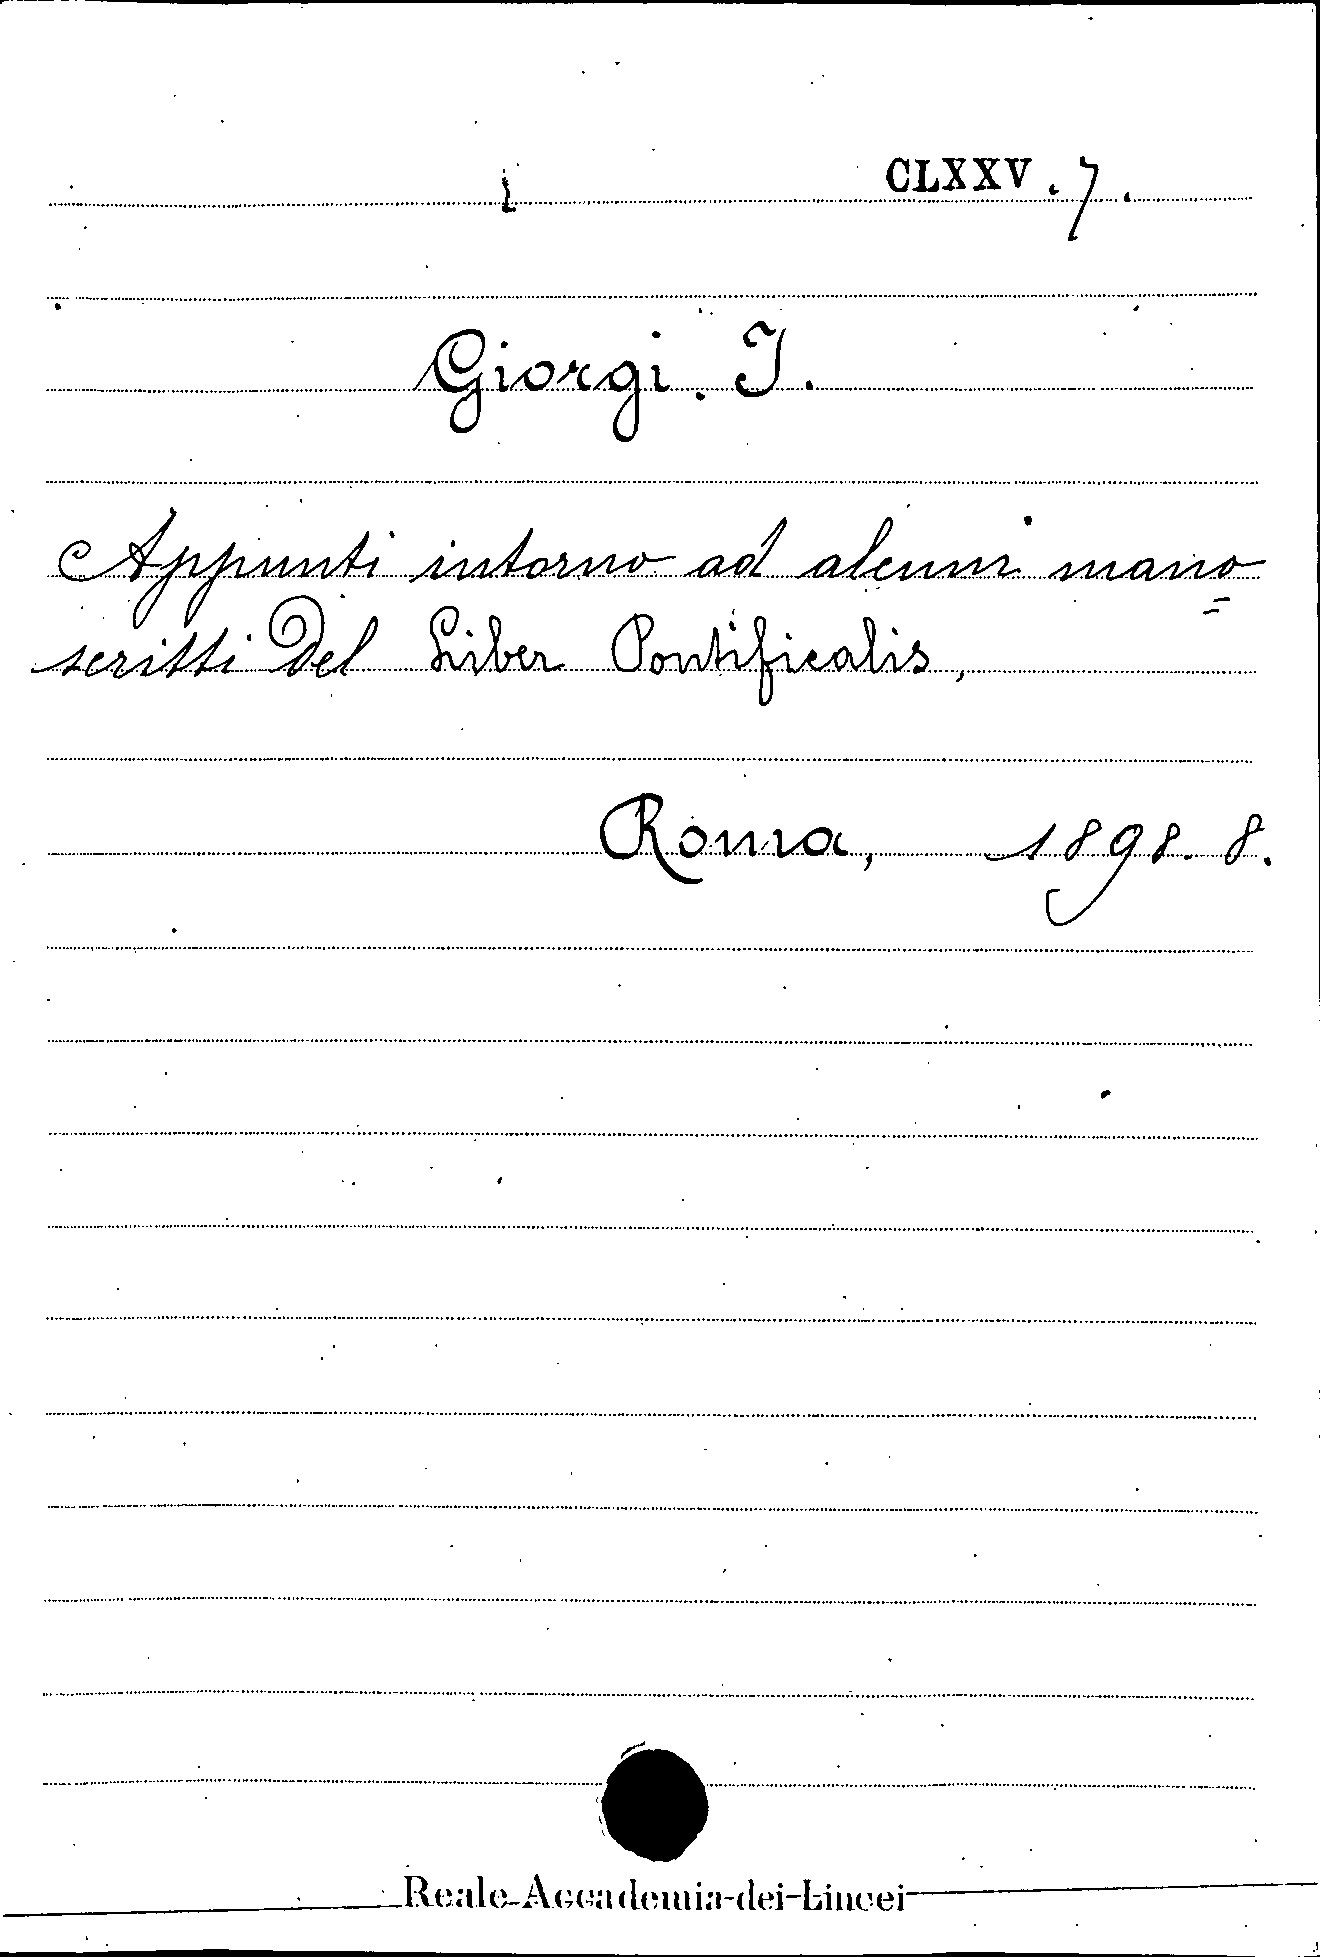 CLXXV . 7 .
Giorgi. I.
Appunti intorno ad alcuni mano=
scritti del Liber Pontificalis,
Roma, 1898. 8.
Reale Accademia dei Lincei